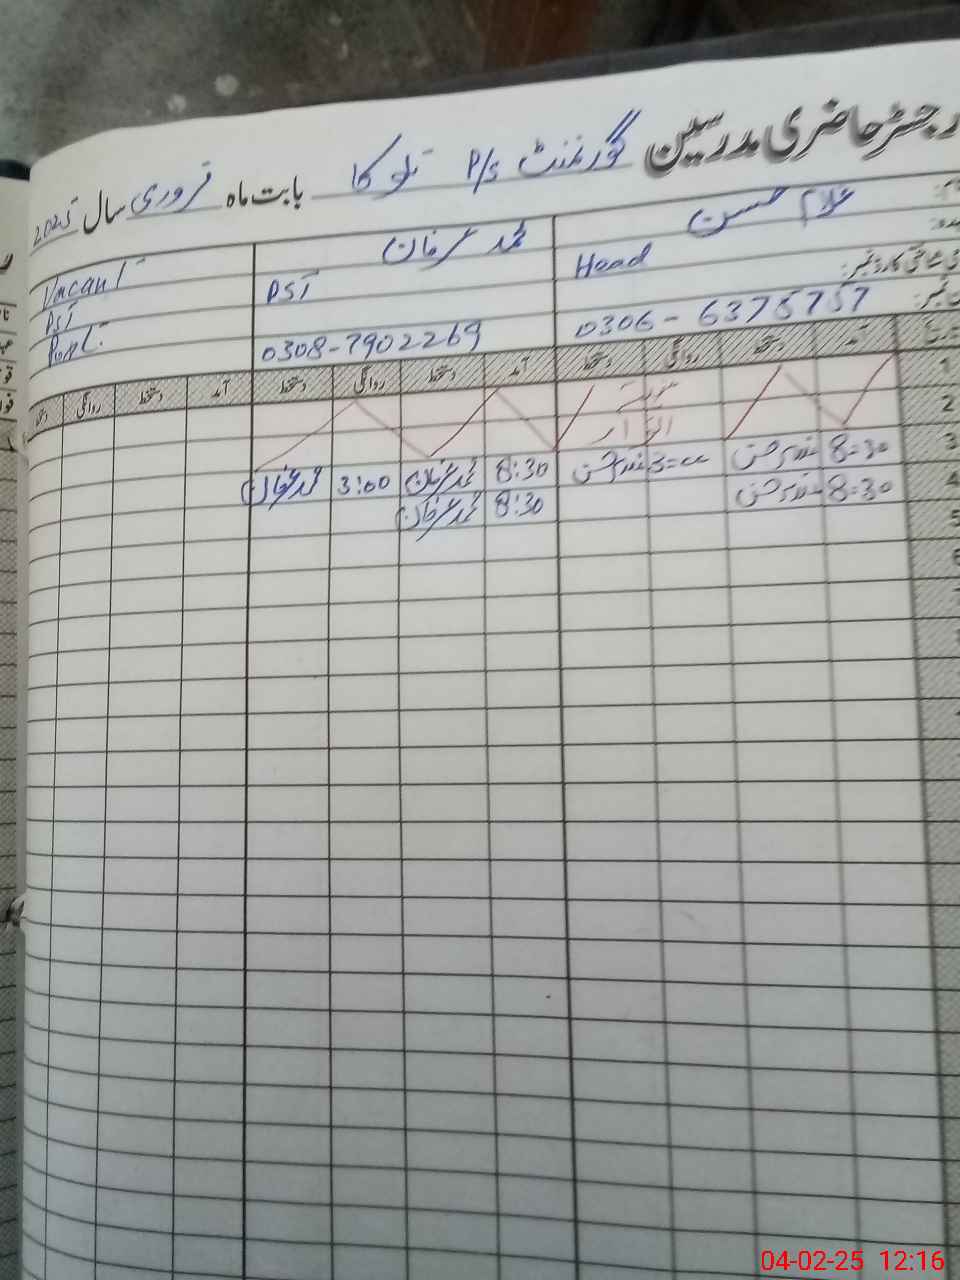 رجسٹر حاضری مدرسین گورنمنٹ P/S تلوکا بابت ماہ فروری سال 2025
غلام حسن محمد عرفان Vacant
Head PST PST
شناختی کارڈ نمبر:
0306-6375757 0308-7902269 Post
آمد دستخط روانگی دستخط آمد دستخط روانگی دستخط آمد دستخط روانگی
1
2 اتوار
3 8=30 3=00 8:30 محمد عرفان 3:00 محمد عرفان
4 8=30 8:30 محمد عرفان
5
6
04-02-25 12:16